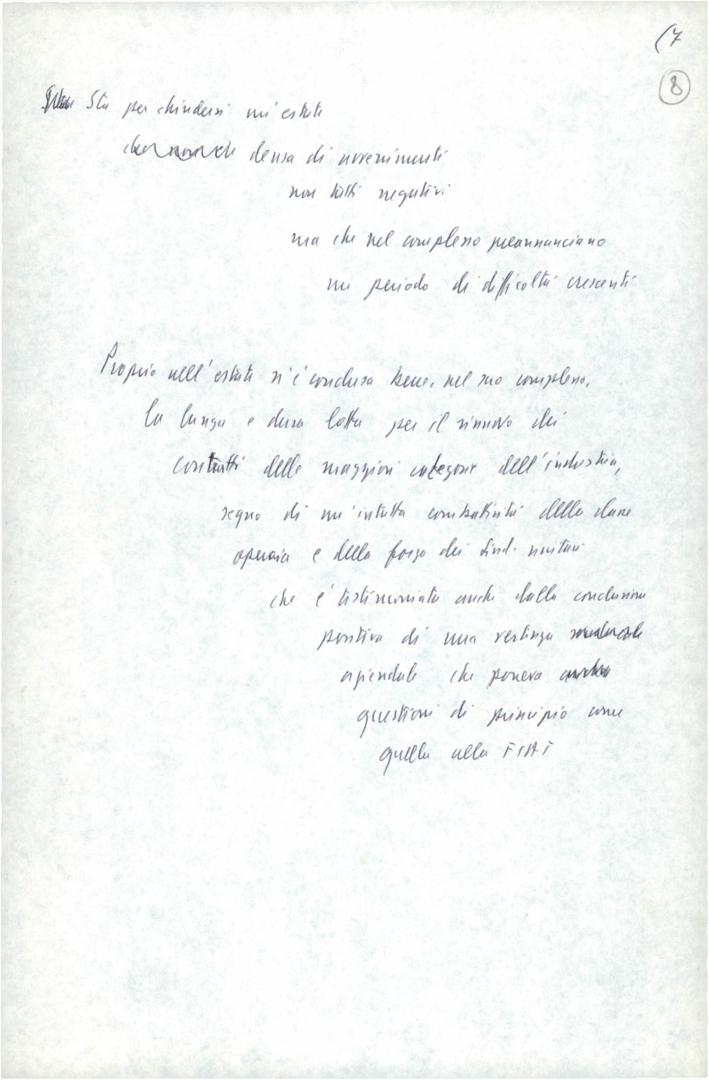 (7
8
Sta per chiudersi un'estate
densa di avvenimenti
non tutti negativi
ma che nel complesso preannunciano
un periodo di difficoltà crescenti
Proprio nell'estate si è conclusa bene, nel suo complesso,
la lunga e dura lotta per il rinnovo dei
contratti delle maggiori categorie dell'industria,
segno di un'intatta combattività della classe
operaia e della forza dei sind. unitari
che è testimoniata anche dalla conclusione
positiva di una vertenza
aziendale che poneva
questioni di principio come
quella alla FIAT